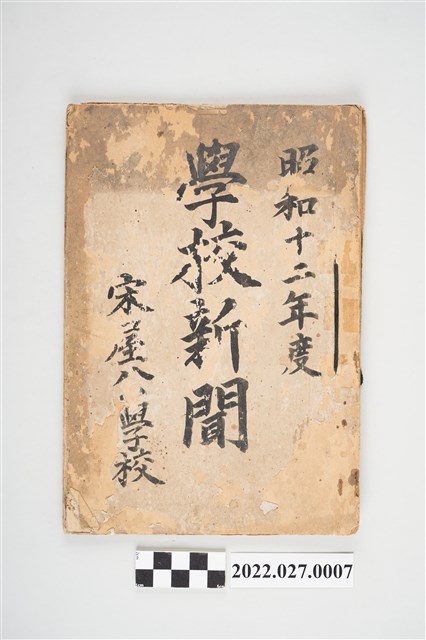 昭和十二年度
學校新聞
宋屋公學校
2022.027.0007